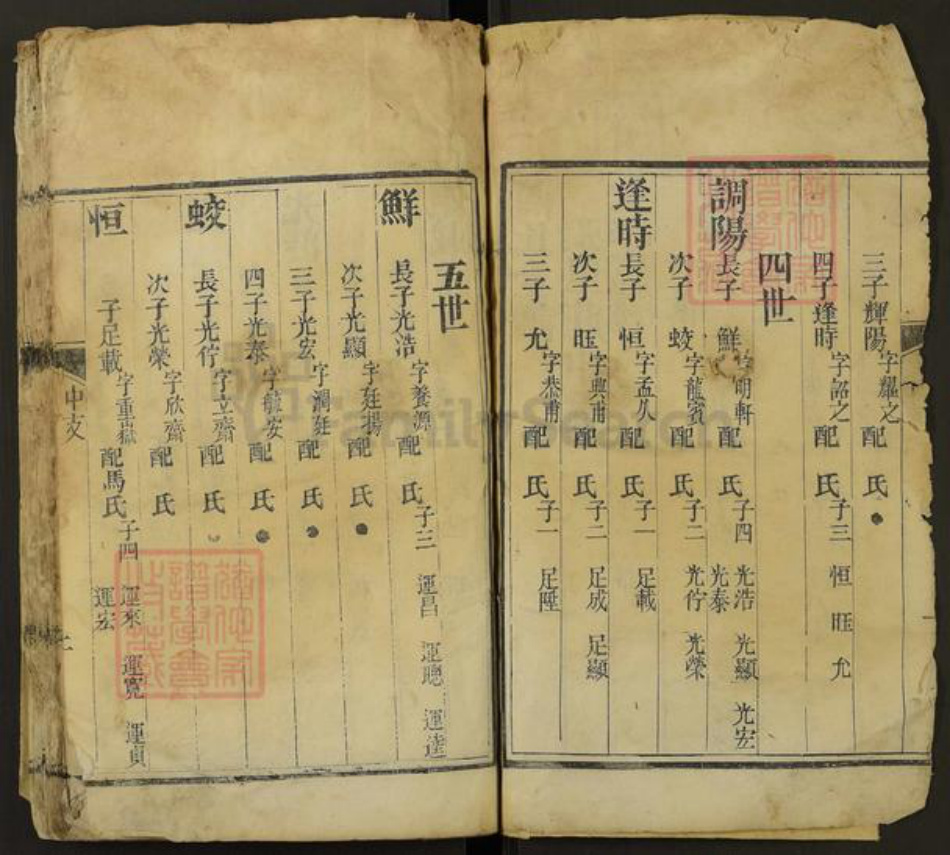 三子輝陽字耀之配 氏
四子逢時字韶之配 氏子三 恒 旺 允
四世
調陽長子 鮮字朗軒配 氏子四 光浩 光顯 光宏 光泰
次子 蛟字龍賓配 氏子二 光佇 光榮
逢時長子 恒字孟久配 氏子一 足載
次子 旺字興甫配 氏子二 足成 足顯
三子 允字恭甫配 氏子一 足陞
五世
鮮 長子光浩字養源配 氏子三 運昌 運聰 運達
次子光顯字廷揚配 氏
三子光宏字潤廷配 氏
四子光泰字龍安配 氏
蛟 長子光佇字立齋配 氏
次子光榮字欣齋配 氏
恒 子足載字重嶽配馬氏子四 運來 運寬 運貞 運宏
中支
FamilySearch